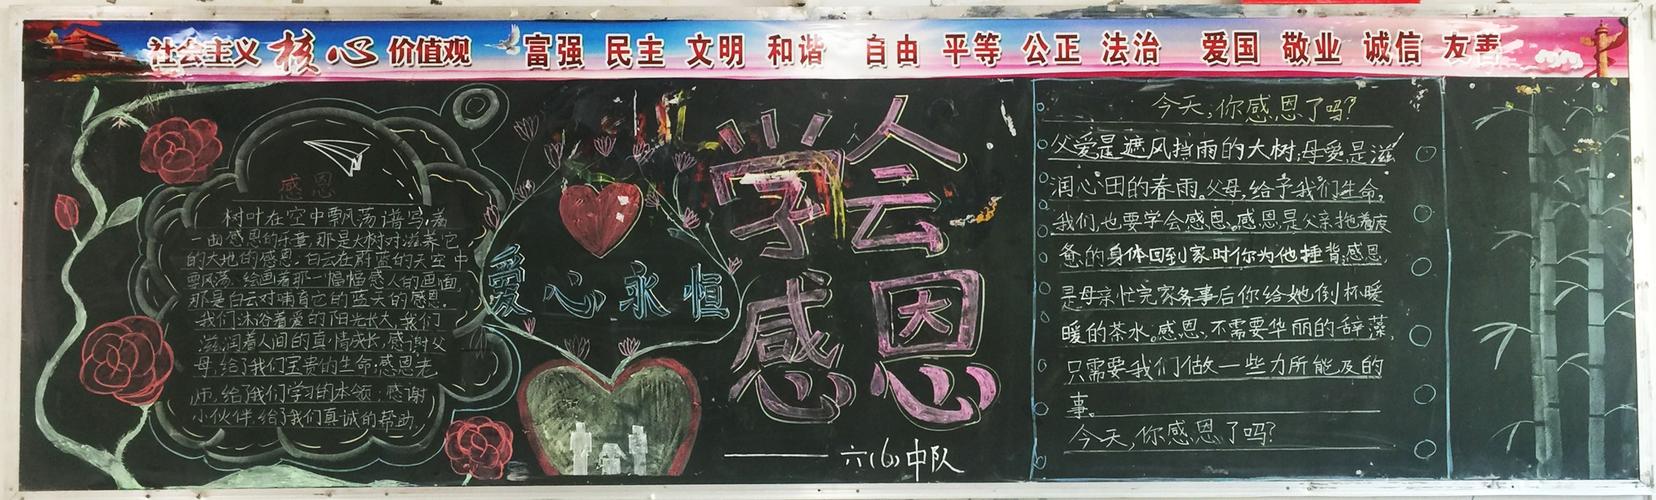 社会主义核心价值观 富强 民主 文明 和谐 自由 平等 公正 法治 爱国 敬业 诚信 友善
感恩
树叶在空中飘荡谱写着
一曲感恩的乐章,那是大树对滋养它
的大地的感恩。白云在蔚蓝的天空中
飘荡,绘画着那一幅幅感人的画面,
那是白云对哺育它的蓝天的感恩。
我们沐浴着爱的阳光长大,我们
滋润着人间的真情成长,感谢父
母,给了我们宝贵的生命;感恩老
师,给了我们学习的本领;感谢
小伙伴,给了我们真诚的帮助。
爱心永恒
学会
感恩
——六(6)中队
今天,你感恩了吗?
父爱是遮风挡雨的大树;母爱是滋
润心田的春雨。父母,给予我们生命,
我们,也要学会感恩。感恩是父亲拖着疲
惫的身体回到家时你为他捶背;感恩,
是母亲忙完家务事后你给她倒杯暖
暖的茶水。感恩,不需要华丽的辞藻,
只需要我们做一些力所能及的
事。
今天,你感恩了吗?